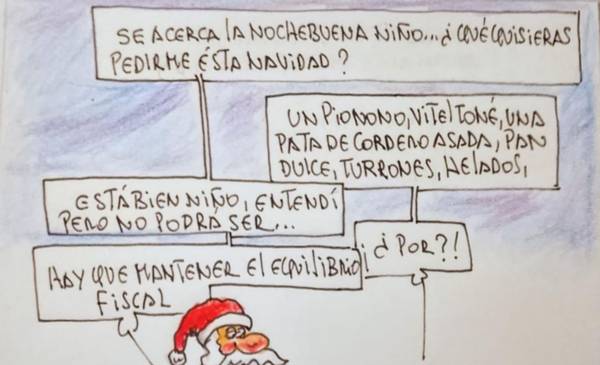 SE ACERCA LA NOCHEBUENA NIÑO...¿QUÉ QUISIERAS
PEDIRME ÉSTA NAVIDAD?
UN PIONONO, VITEL TONÉ, UNA
PATA DE CORDERO ASADA, PAN
DULCE, TURRONES, HELADOS,
ESTÁ BIEN NIÑO, ENTENDÍ
PERO NO PODRÁ SER...
¿POR?!
HAY QUE MANTENER EL EQUILIBRIO
FISCAL